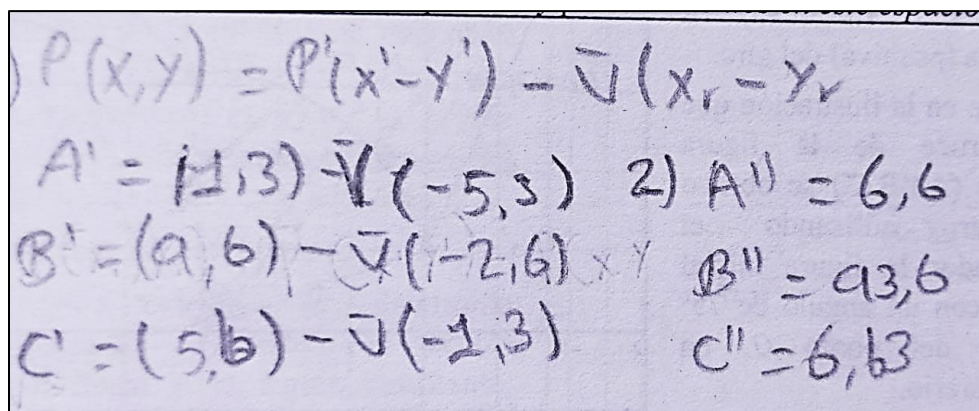 ) P(x,y) = P'(x'-y') - v̄(xᵣ - yᵣ
A' = (-1,3) - v̄(-5,3) 2) A'' = 6,6
B' = (a,6) - v̄(-2,6) x y B'' = a3,6
C' = (5,b) - v̄(-1,3) C'' = 6,b3